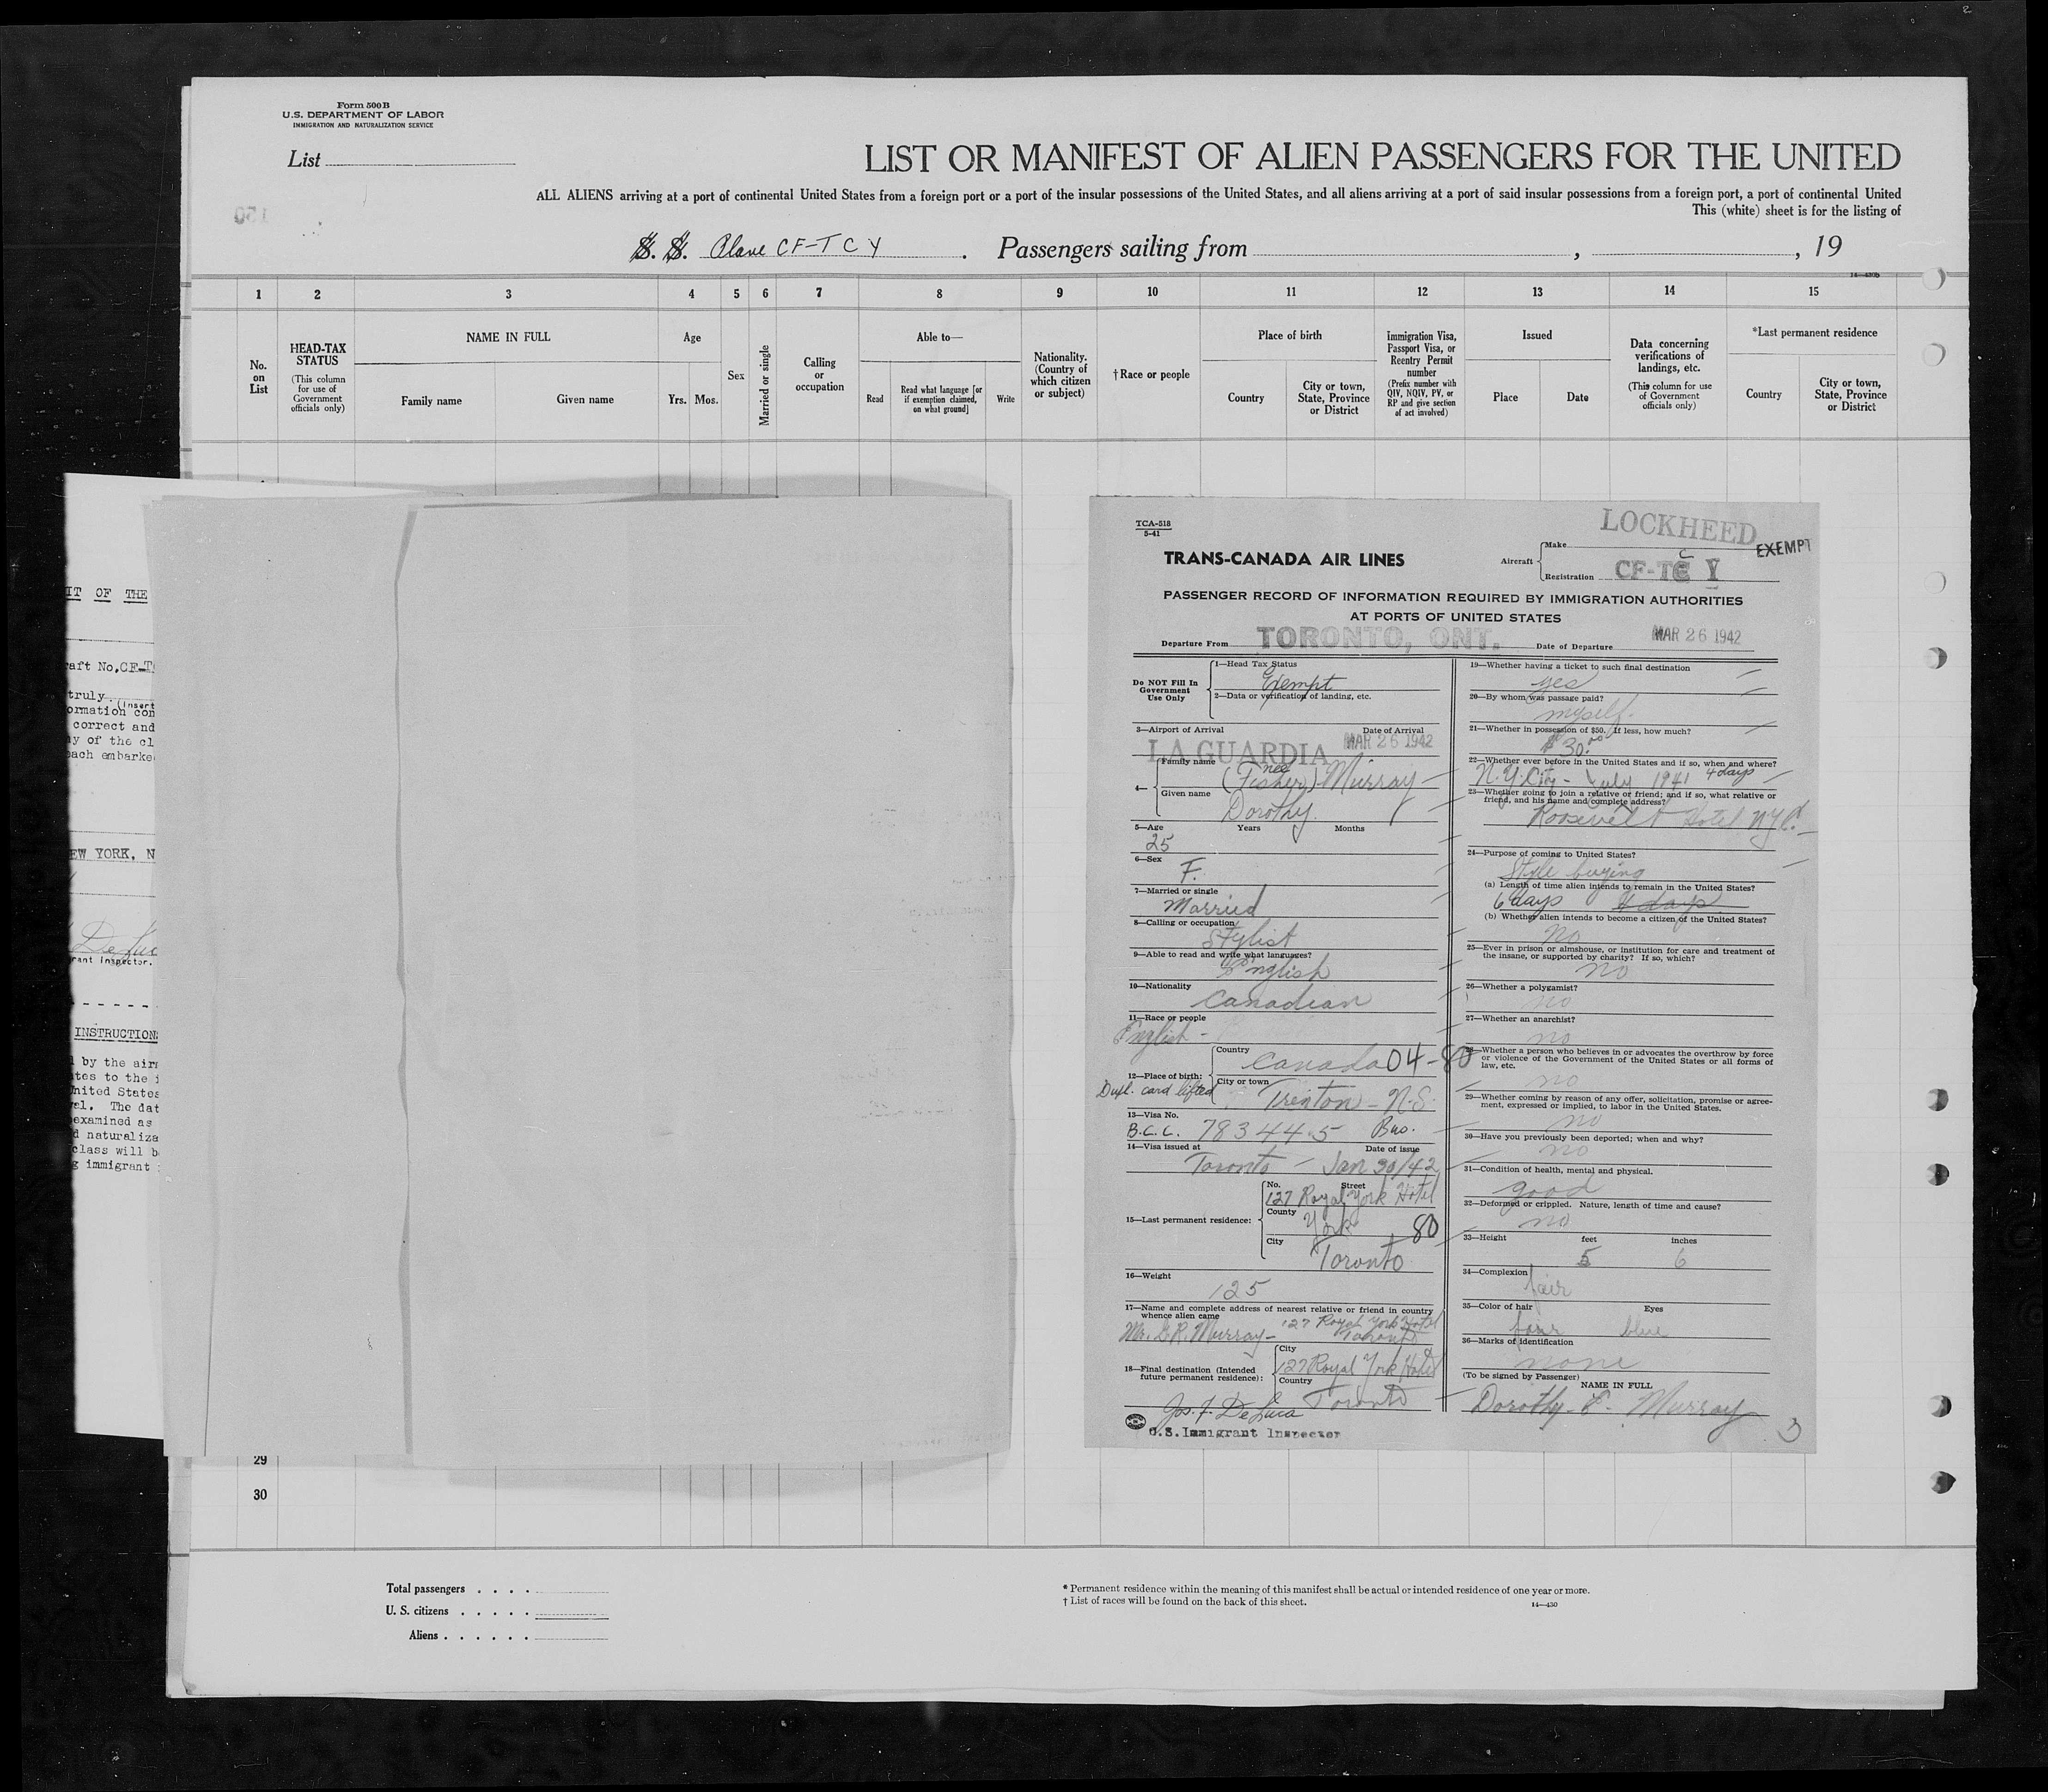 Form 500B
U.S. DEPARTMENT OF LABOR
IMMIGRATION AND NATURALIZATION SERVICE
List
LIST OR MANIFEST OF ALIEN PASSENGERS FOR THE UNITED
ALL ALIENS arriving at a port of continental United States from a foreign port or a port of the insular possessions of the United States, and all aliens arriving at a port of said insular possessions from a foreign port, a port of continental United
This (white) sheet is for the listing of
150
S. S. Plane CF-TCY. Passengers sailing from , , 19
14—430b
1 2 3 4 5 6 7 8 9 10 11 12 13 14 15
No. on List
HEAD-TAX STATUS
(This column for use of Government officials only)
NAME IN FULL
Family name Given name
Age
Yrs. Mos.
Sex
Married or single
Calling or occupation
Able to—
Read
Read what language [or if exemption claimed, on what ground]
Write
Nationality. (Country of which citizen or subject)
†Race or people
Place of birth
Country
City or town, State, Province or District
Immigration Visa, Passport Visa, or Reentry Permit number
(Prefix number with QIV, NQIV, PV, or RP and give section of act involved)
Issued
Place Date
Data concerning verifications of landings, etc.
(This column for use of Government officials only)
*Last permanent residence
Country
City or town, State, Province or District
IT OF THE
raft No. CF-T
truly
(Insert
ormation con
correct and
y of the cl
each embarke
EW YORK, N
De Luc
rant Inspector.
INSTRUCTION
by the air
tes to the i
nited States
The dat
examined as
d naturaliza
class will b
g immigrant
TCA-518
5-41
TRANS-CANADA AIR LINES
LOCKHEED
EXEMPT
Aircraft
Make
Registration CF-TCY
C
PASSENGER RECORD OF INFORMATION REQUIRED BY IMMIGRATION AUTHORITIES
AT PORTS OF UNITED STATES
Departure From TORONTO, ONT. Date of Departure MAR 26 1942
Do NOT Fill In Government Use Only
1—Head Tax Status
Exempt
2—Data or verification of landing, etc.
3—Airport of Arrival Date of Arrival
LA GUARDIA MAR 26 1942
4—
Family name (nee Fisher) Murray
Given name Dorothy
5—Age Years Months
25
6—Sex
F.
7—Married or single
Married
8—Calling or occupation
Stylist
9—Able to read and write what languages?
English
10—Nationality
Canadian
11—Race or people
English -
12—Place of birth:
Country Canada 04-80
City or town Trenton - N.S.
Dupl. card lifted
13—Visa No.
B.C.C. 783445 Bus.
14—Visa issued at Date of issue
Toronto - Jan 30/42
15—Last permanent residence:
No. Street
127 Royal York Hotel
County York 80
City Toronto
16—Weight
125
17—Name and complete address of nearest relative or friend in country whence alien came
Mr. Murray - 127 Royal York Hotel
Toronto
18—Final destination (Intended future permanent residence):
City 127 Royal York Hotel
Country Toronto
Jos. F. DeLuca
U.S. Immigrant Inspector
19—Whether having a ticket to such final destination
yes
20—By whom was passage paid?
myself.
21—Whether in possession of $50. If less, how much?
$30.00
22—Whether ever before in the United States and if so, when and where?
N.Y. City - July 1941 4 days
23—Whether going to join a relative or friend; and if so, what relative or friend, and his name and complete address?
Roosevelt Hotel N.Y.C.
24—Purpose of coming to United States?
Style buying
(a) Length of time alien intends to remain in the United States?
6 days 4 days
(b) Whether alien intends to become a citizen of the United States?
No
25—Ever in prison or almshouse, or institution for care and treatment of the insane, or supported by charity? If so, which?
no
26—Whether a polygamist?
no
27—Whether an anarchist?
no
28—Whether a person who believes in or advocates the overthrow by force or violence of the Government of the United States or all forms of law, etc.
no
29—Whether coming by reason of any offer, solicitation, promise or agreement, expressed or implied, to labor in the United States.
no
30—Have you previously been deported; when and why?
no
31—Condition of health, mental and physical.
good
32—Deformed or crippled. Nature, length of time and cause?
no
33—Height feet inches
5 6
34—Complexion
fair
35—Color of hair Eyes
fair blue
36—Marks of identification
none
(To be signed by Passenger)
NAME IN FULL
Dorothy F. Murray
3
29
30
Total passengers . . . .
U. S. citizens . . . . .
Aliens . . . . . .
* Permanent residence within the meaning of this manifest shall be actual or intended residence of one year or more.
† List of races will be found on the back of this sheet.
14—430